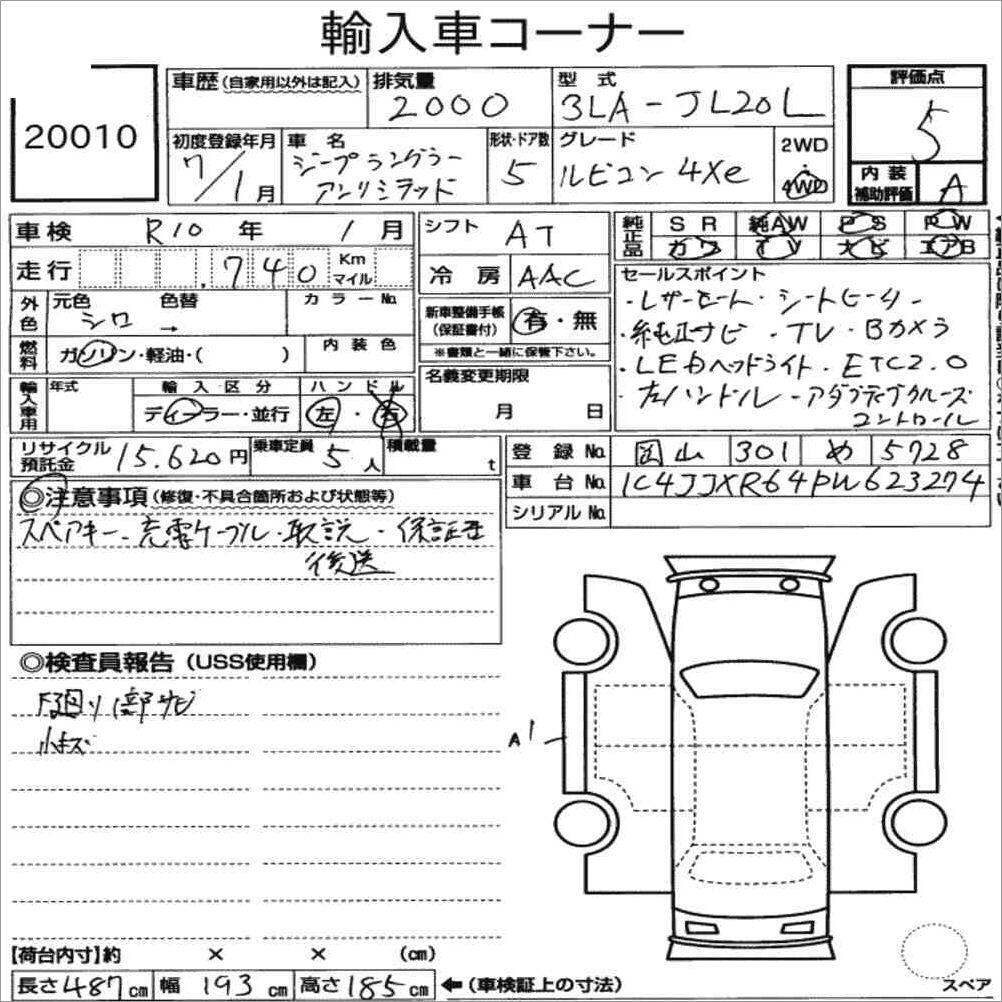 輸入車コーナー
20010
車歴(自家用以外は記入) 排気量 2000 型式 3LA-JL20L 評価点 5
初度登録年月 7/1月 車名 ジープラングラー アンリミテッド 形状・ドア数 5 グレード ルビコン 4Xe 2WD・4WD 内装補助評価 A
車検 R10年 1月 シフト AT 純正品 SR 純AW PS PW
カワ TV ナビ エアB
走行 740 Km マイル 冷房 AAC
外色 元色 シロ 色替 → カラーNo. 新車整備手帳(保証書付) 有・無
※書類と一緒に保管下さい。
燃料 ガソリン・軽油・( ) 内装色
名義変更期限 月 日
輸入車用 年式 輸入区分 ディーラー・並行 ハンドル 左・右
セールスポイント
・レザーシート・シートヒーター
・純正ナビ・TV・Bカメラ
・LEDヘッドライト・ETC2.0
左ハンドル・アダプティブクルーズ
コントロール
リサイクル預託金 15.620円 乗車定員 5人 積載量 t
登録No. 岡山 301 め 5728
車台No. 1C4JJXR64PW623274
シリアルNo.
◎注意事項(修復・不具合箇所および状態等)
スペアキー・充電ケーブル・取説・保証書
後送
◎検査員報告(USS使用欄)
下廻り 部サビ
小キズ
A1
【荷台内寸】約 × × (cm)
長さ487cm 幅193cm 高さ185cm ←(車検証上の寸法)
スペア